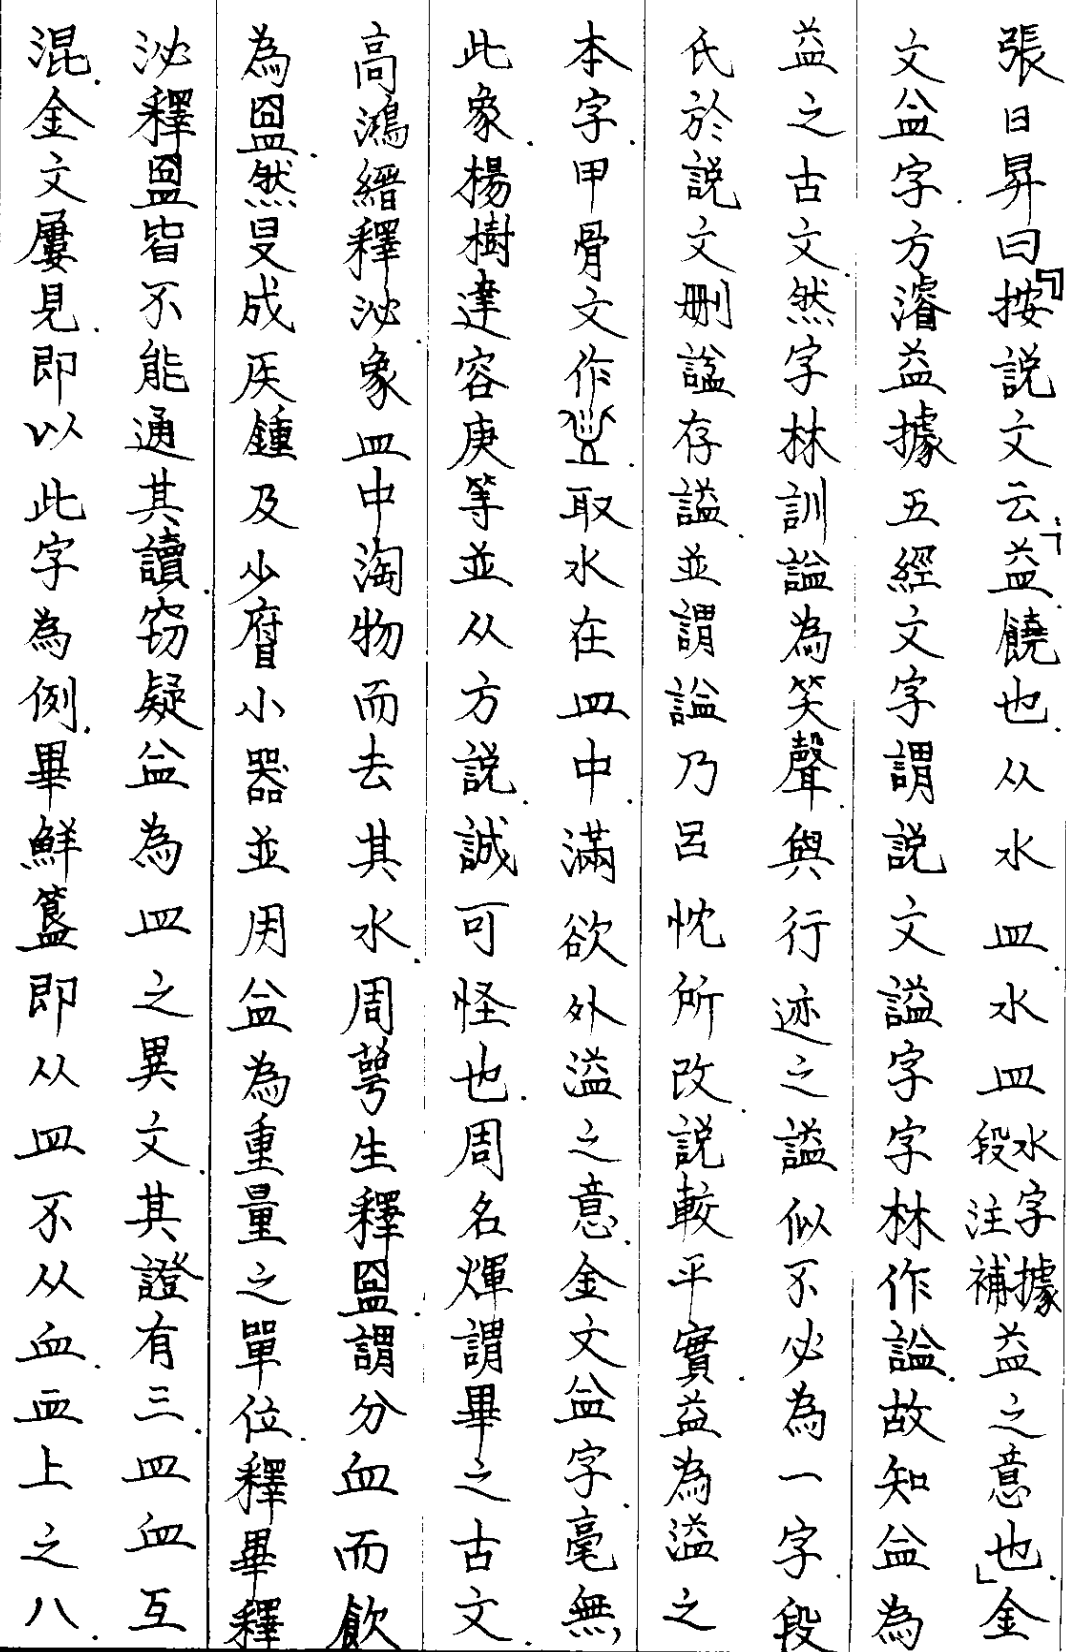 張日昇曰按説文云益饒也从水皿水皿水字據段注補益之意也金
文𬐚字方濬益據五經文字謂説文謚字字林作諡故知𬐚為
益之古文然字林訓謚為笑聲與行迹之謚似不必為一字段
氏於説文刪諡存謚並謂諡乃呂忱所改説較平實益為溢之
本字甲骨文作取水在皿中滿欲外溢之意金文𬐚字毫無
此象楊樹達容庚等並从方説誠可怪也周名煇謂畢之古文
高鴻縉釋泌象皿中淘物而去其水周萼生釋盥謂分血而飲
為盟然旻成医鍾及少府小器並用𬐚為重量之單位釋畢釋
泌釋盟皆不能通其讀竊疑𬐚為皿之異文其證有三皿血互
混金文屢見即以此字為例畢鮮簋即从皿不从血皿上之八